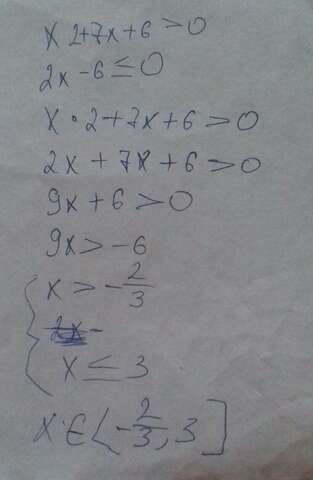 x 2+7x+6>0
2x-6≤0
x·2+7x+6>0
2x+7x+6>0
9x+6>0
9x>-6
x>-2/3
x≤3
x∈(-2/3,3]